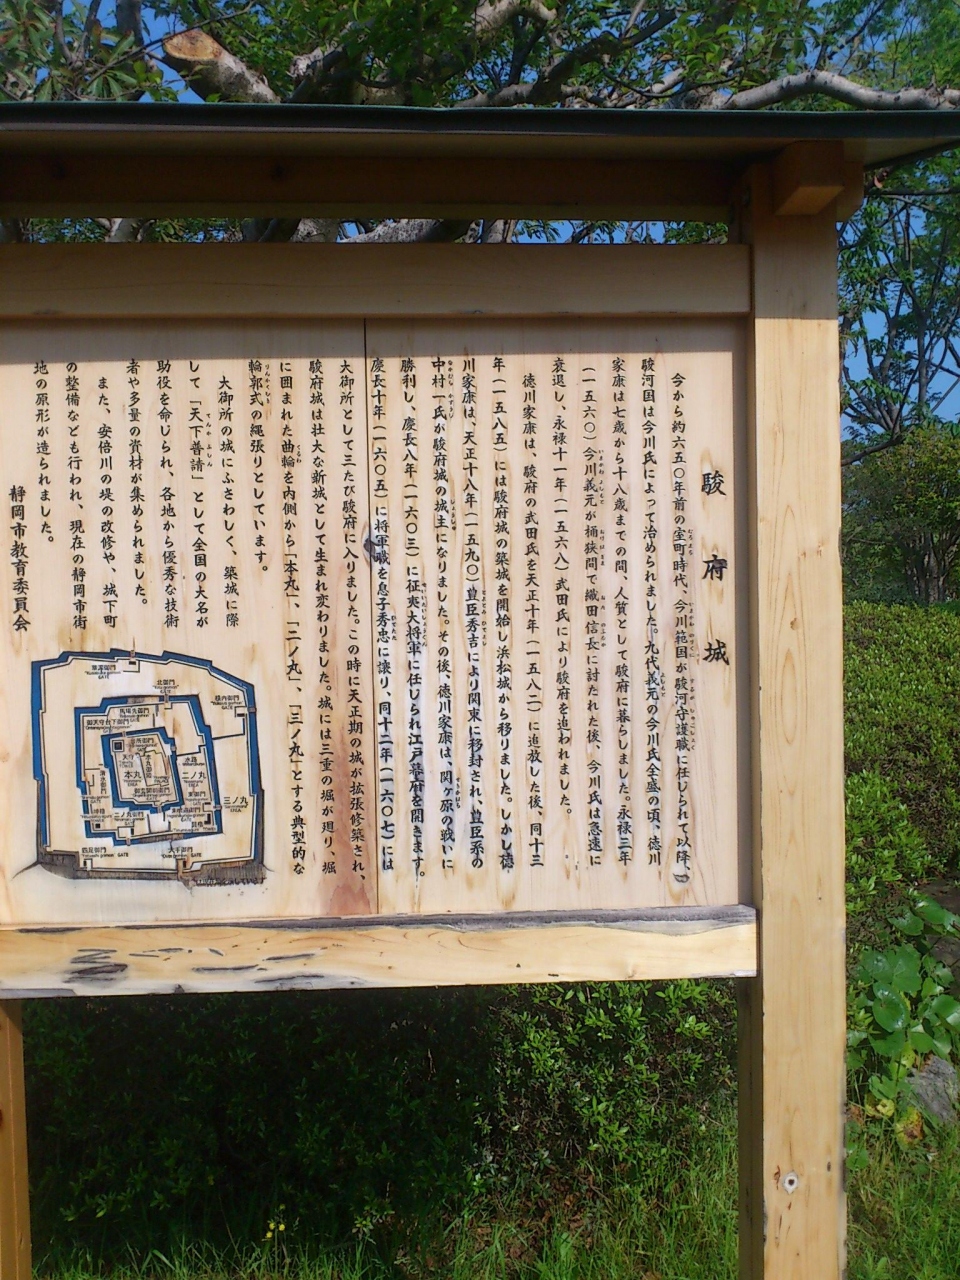 駿府城
今から約六五〇年前の室町時代、今川範国が駿河守護職に任じられて以降、
駿河国は今川氏によって治められました。九代義元の今川氏全盛の頃、徳川
家康は七歳から十八歳までの間、人質として駿府に暮らしました。永禄三年
(一五六〇)今川義元が桶狭間で織田信長に討たれた後、今川氏は急速に
衰退し、永禄十一年(一五六八)武田氏により駿府を追われました。
徳川家康は、駿府の武田氏を天正十年(一五八二)に追放した後、同十三
年(一五八五)には駿府城の築城を開始し浜松城から移りました。しかし徳
川家康は、天正十八年(一五九〇)豊臣秀吉により関東に移封され、豊臣系の
中村一氏が駿府城の城主になりました。その後、徳川家康は、関ヶ原の戦いに
勝利し、慶長八年(一六〇三)に征夷大将軍に任じられ江戸幕府を開きます。
慶長十年(一六〇五)に将軍職を息子秀忠に譲り、同十二年(一六〇七)には
大御所として三たび駿府に入りました。この時に天正期の城が拡張修築され、
駿府城は壮大な新城として生まれ変わりました。城には三重の堀が廻り、堀
に囲まれた曲輪を内側から「本丸」、「二ノ丸」、「三ノ丸」とする典型的な
輪郭式の縄張りとしています。
大御所の城にふさわしく、築城に際
して「天下普請」として全国の大名が
助役を命じられ、各地から優秀な技術
者や多量の資材が集められました。
また、安倍川の堤の改修や、城下町
の整備なども行われ、現在の静岡市街
地の原形が造られました。
静岡市教育委員会
草深御門
北御門
横内御門
馬場先御門
御天守台下御門
天守
本丸
二ノ丸
三ノ丸
水路
東御門
清水御門
二ノ丸御門
四足御門
大手御門